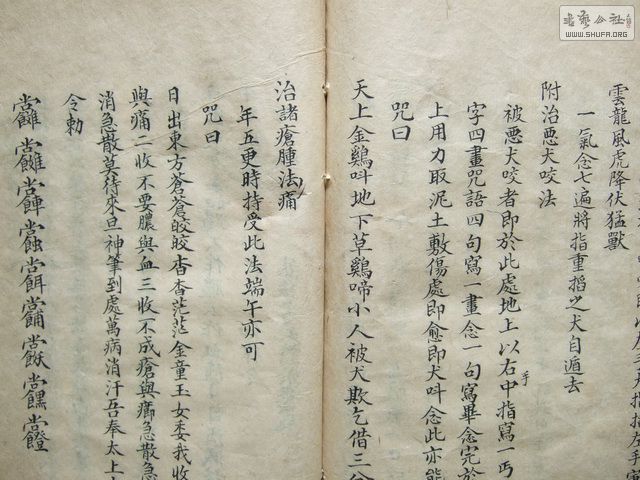 雲龍風虎降伏猛獸
一氣念七遍將指重搯之犬自遁去
附治悪犬咬法
被悪犬咬者即於此處地上以右中指寫一丐
手
字四畫咒語四句寫一畫念一句寫畢念完於
上用力取泥土敷傷處即愈即犬呌念此亦能
咒曰
天上金鷄呌地下草鷄啼小人被犬欺乞借三分
治諸瘡腫法痛
年五更時持受此法端午亦可
咒曰
日出東方蒼蒼皎皎杳杳茫茫金童玉女委我收
與痛二收不要膿與血三收不成瘡與癤急散急
消急散莫待來旦神筆到處萬病消汗吾奉太上
令勅
書藝公社
WWW.SHUFA.ORG